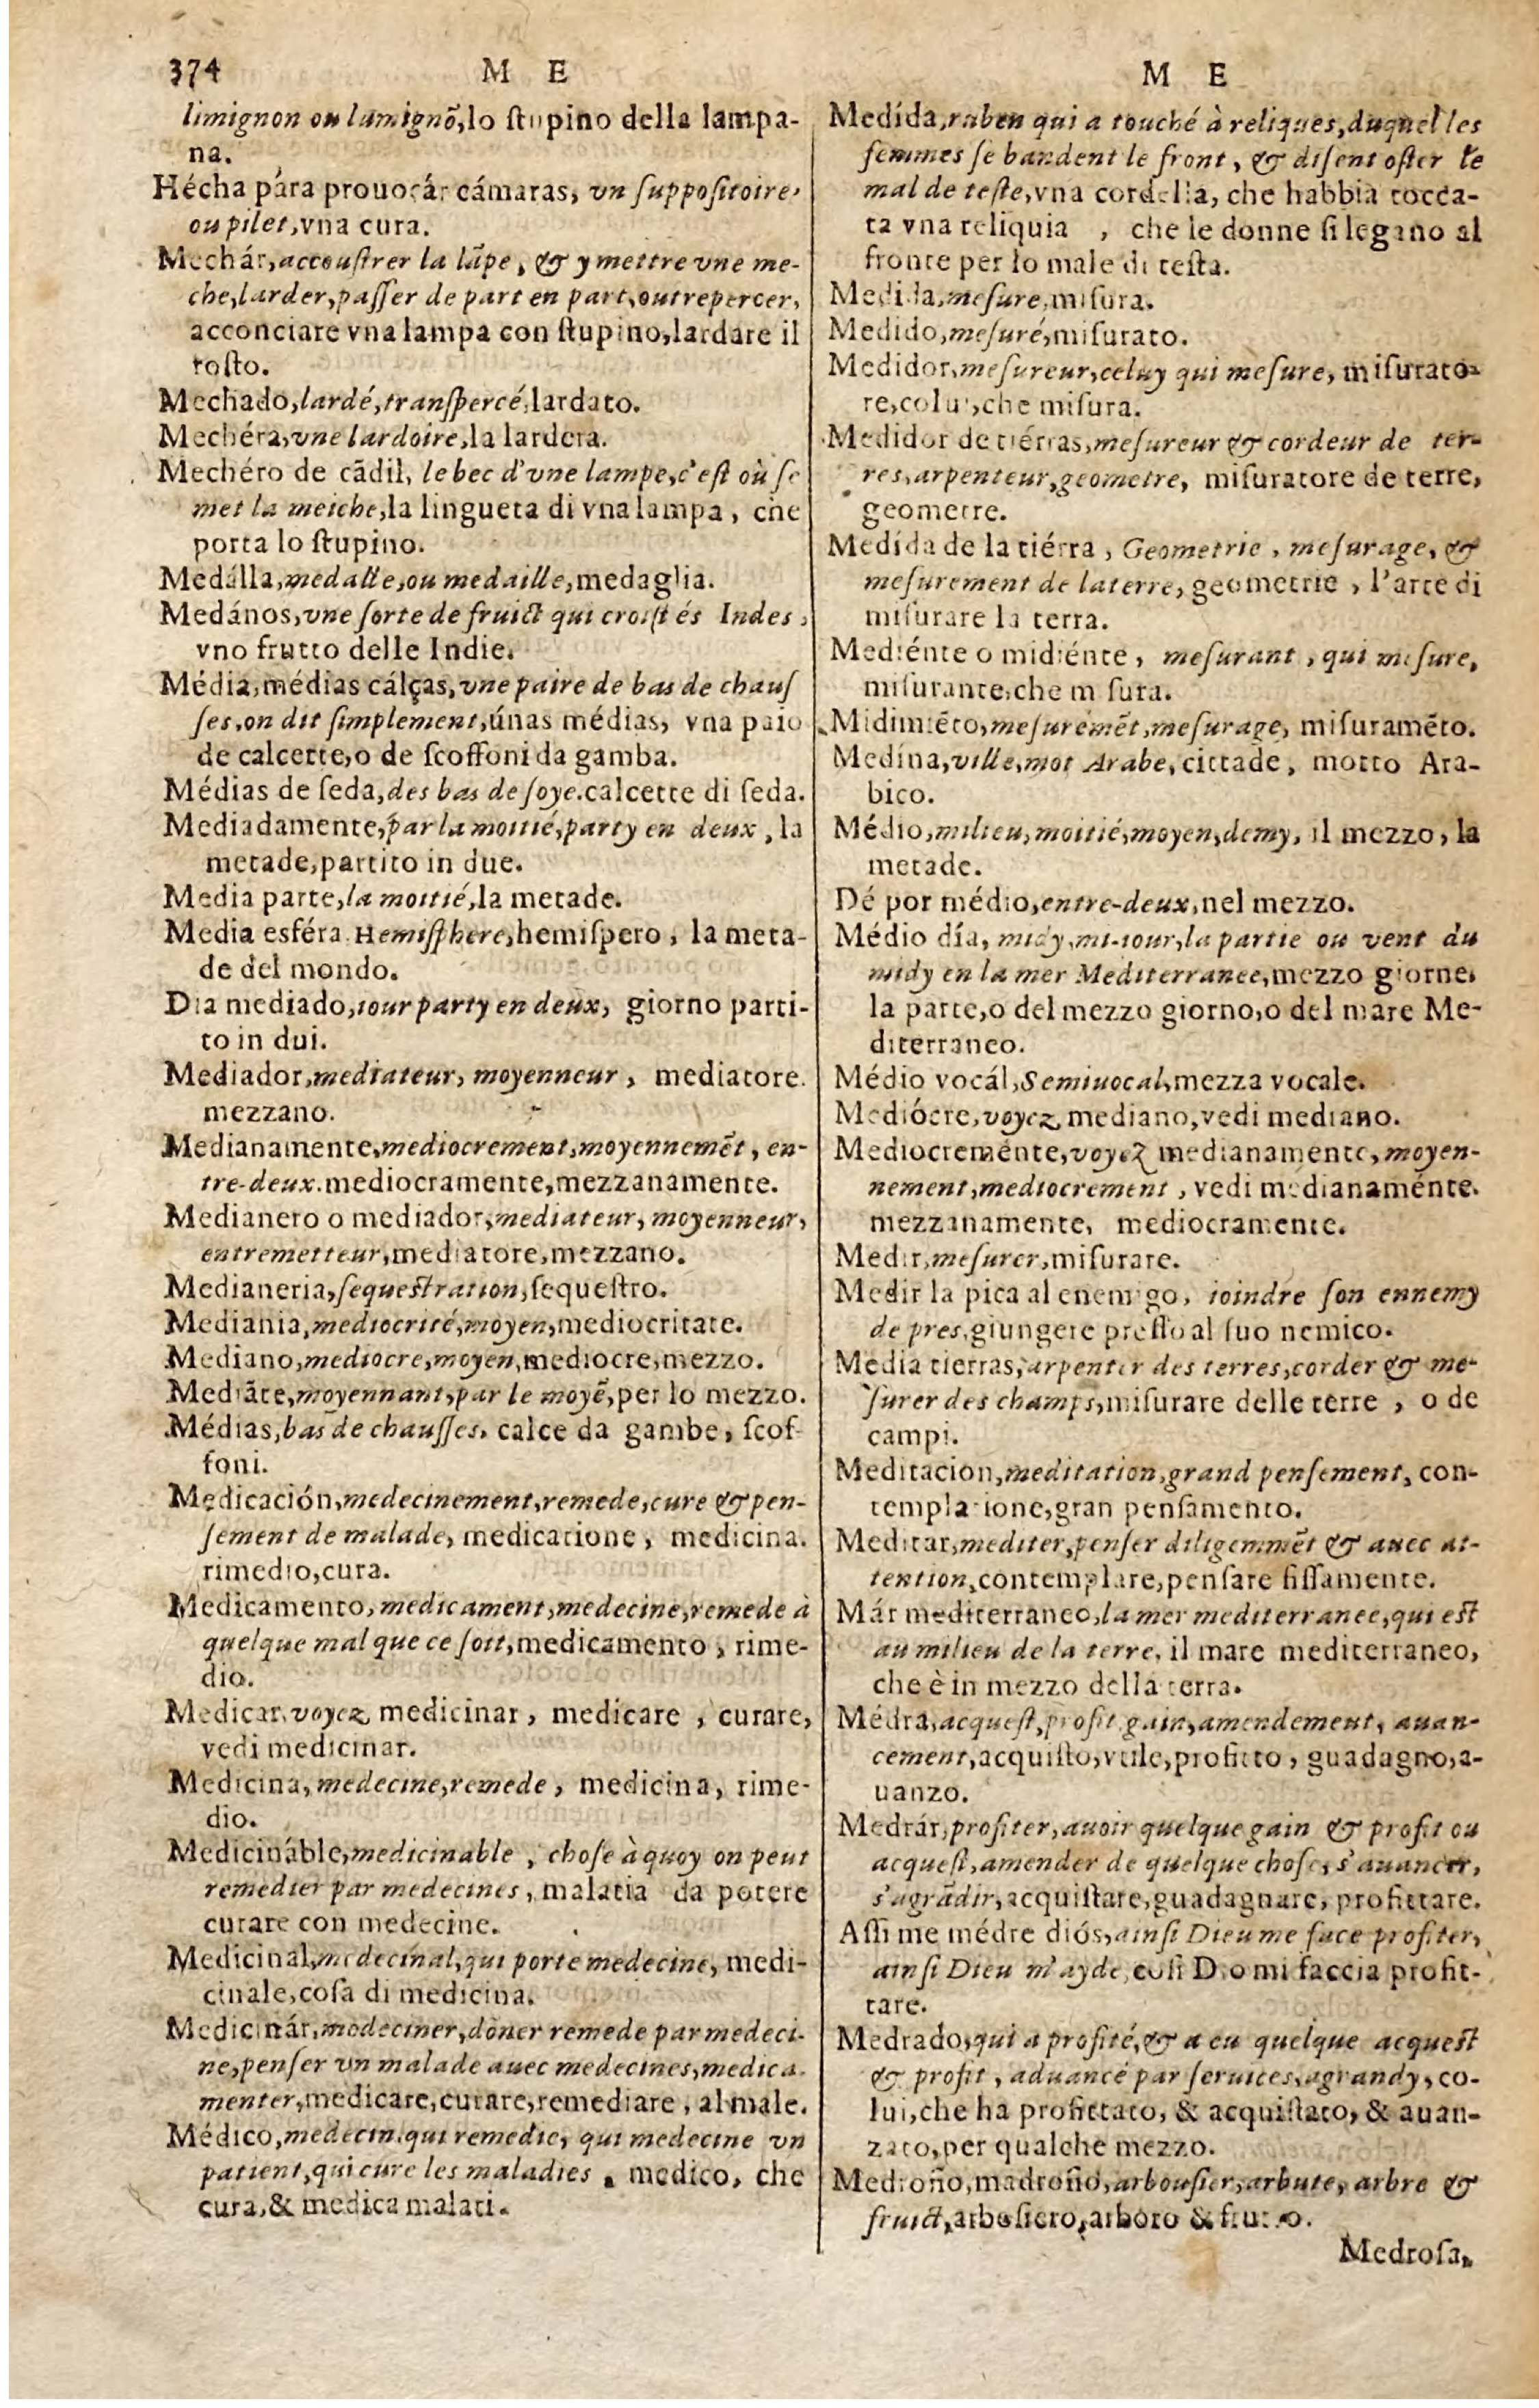 374 M E
limignon ou lumignõ, lo ſtupino della lampa-
na.
Hécha pára prouocár cámaras, vn ſuppoſitoire,
ou pilet, vna cura.
Mechár, accouſtrer la lãpe, & y mettre vne me-
che, larder, paſſer de part en part, outrepercer,
acconciare vna lampa con ſtupino, lardare il
roſto.
Mechado, lardé, tranſpercé, lardato.
Mechéra, vne lardoire, la lardera.
Mechéro de cãdil, le bec d'vne lampe, c'eſt où ſe
met la meiche, la lingueta di vna lampa, che
porta lo ſtupino.
Medálla, medalle, ou medaille, medaglia.
Medános, vne ſorte de fruict qui croiſt és Indes,
vno frutto delle Indie.
Média, médias cálças, vne paire de bas de chauſ
ſes, on dit ſimplement, únas médias, vna paio
de calcette, o de ſcoffoni da gamba.
Médias de ſeda, des bas de ſoye. calcette di ſeda.
Mediadamente, par la moitié, party en deux, la
metade, partito in due.
Media parte, la moitié, la metade.
Media esféra. Hemiſphere, hemiſpero, la meta-
de del mondo.
Dia mediado, iour party en deux, giorno parti-
to in dui.
Mediador, mediateur, moyenneur, mediatore.
mezzano.
Medianamente, mediocrement, moyennemẽt, en-
tre-deux. mediocramente, mezzanamente.
Medianero o mediador, mediateur, moyenneur,
entremetteur, mediatore, mezzano.
Medianeria, ſequeſtration, ſequeſtro.
Mediania, mediocrité, moyen, mediocritate.
Mediano, mediocre, moyen, mediocre, mezzo.
Mediãte, moyennant, par le moyẽ, per lo mezzo.
Médias, bas de chauſſes, calce da gambe, ſcof-
foni.
Medicación, medecinement, remede, cure & pen-
ſement de malade, medicatione, medicina.
rimedio, cura.
Medicamento, medicament, medecine, remede à
quelque mal que ce ſoit, medicamento, rime-
dio.
Medicar, voyez medicinar, medicare, curare,
vedi medicinar.
Medicina, medecine, remede, medicina, rime-
dio.
Medicináble, medicinable, choſe à quoy on peut
remedier par medecines, malatia da potere
curare con medecine.
Medicinal, medecinal, qui porte medecine, medi-
cinale, coſa di medicina.
Medicinár, medeciner, dõner remede par medeci-
ne, penſer vn malade auec medecines, medica-
menter, medicare, curare, remediare, al male.
Médico, medecin. qui remedie, qui medecine vn
patient, qui cure les maladies, medico, che
cura, & medica malati.
M E
Medída, ruben qui a touché à reliques, duquel les
femmes ſe bandent le front, & diſent oſter le
mal de teſte, vna cordella, che habbia tocca-
ta vna reliquia, che le donne ſi legano al
fronte per lo male di teſta.
Medida, meſure, miſura.
Medido, meſuré, miſurato.
Medidor, meſureur, celuy qui meſure, miſurato-
re, colui, che miſura.
Medidor de tiérras, meſureur & cordeur de ter-
res, arpenteur, geometre, miſuratore de terre,
geometre.
Medída de la tiérra, Geometrie, meſurage, &
meſurement de la terre, geometrie, l'arte di
miſurare la terra.
Mediénte o midiénte, meſurant, qui meſure,
miſurante, che miſura.
Midimiẽto, meſuremẽt, meſurage, miſuramẽto.
Medína, ville, mot Arabe, cittade, motto Ara-
bico.
Médio, milieu, moitié, moyen, demy, il mezzo, la
metade.
Dé por médio, entre-deux, nel mezzo.
Médio día, midy, mi-iour, la partie ou vent du
midy en la mer Mediterranee, mezzo giorne,
la parte, o del mezzo giorno, o del mare Me-
diterraneo.
Médio vocál, Semiuocal, mezza vocale.
Medióere, voyez mediano, vedi mediano.
Mediocreménte, voyez medianamente, moyen-
nement, mediocrement, vedi medianaménte.
mezzanamente, mediocramente.
Medir, meſurer, miſurare.
Medir la pica al enemigo, ioindre ſon ennemy
de pres, giungere preſſo al ſuo nemico.
Media tierras, arpenter des terres, corder & me-
ſurer des champs, miſurare delle terre, o de
campi.
Meditacion, meditation, grand penſement, con-
templatione, gran penſamento.
Meditar, mediter, penſer diligemmẽt & auec at-
tention, contemplare, penſare fiſſamente.
Már mediterraneo, la mer mediterranee, qui eſt
au milieu de la terre, il mare mediterraneo,
che è in mezzo della terra.
Médra, acqueſt, profit, gain, amendement, auan-
cement, acquiſto, vtile, profitto, guadagno, a-
uanzo.
Medrár, profiter, auoir quelque gain & profit ou
acqueſt, amender de quelque choſe, s'auancer,
s'agrãdir, acquiſtare, guadagnare, profittare.
Aſſi me médre diós, ainſi Dieu me face profiter,
ainſi Dieu m'ayde, coſi Dio mi faccia profit-
tare.
Medrado, qui a profité, & a eu quelque acqueſt
& profit, aduancé par ſeruices, agrandy, co-
lui, che ha profittato, & acquiſtato, & auan-
zato, per qualche mezzo.
Medroño, madroño, arbouſier, arbute, arbre &
fruict, arboſiero, arboro & frutto.
Medroſa,